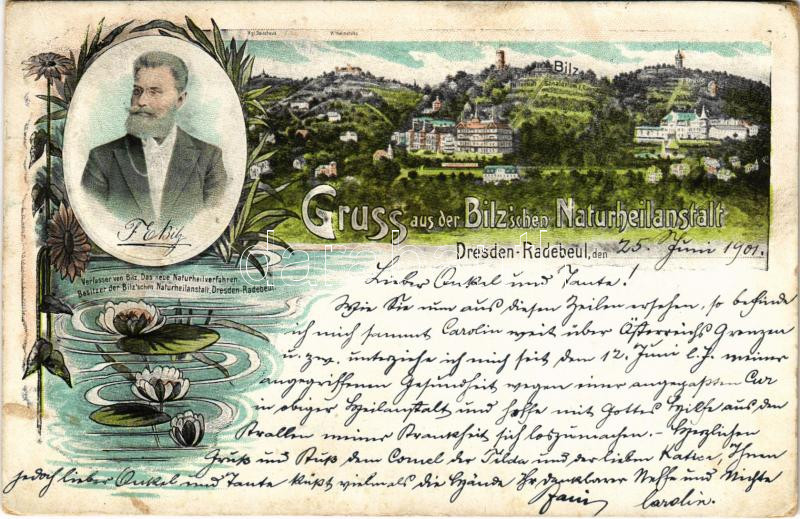 Bilz
Gruss aus der Bilz'schen Naturheilanstalt
Dresden-Radebeul, den 25. Juni 1901.
F. E. Bilz
Verfasser von Bilz, Das neue Naturheilverfahren
Besitzer der Bilz'schen Naturheilanstalt, Dresden-Radebeul
Lieber Onkel und Tante!
Wie Sie nun aus diesen Zeilen ersehen, so befinde
ich mich sammt Carolin weit über Österreichs Grenzen
u. zw. unterziehe ich mich seit dem 12. Juni l. J. meiner
angegriffenen Gesundheit wegen einer angepaßten Cur
in obiger Heilanstalt und hoffe mit Gottes Hilfe aus den
Krallen meiner Krankheit sich loszumachen. - Herzlichen
Gruß und Kuß dem Cornel der Tilda und der lieben, Ihnen
jedoch lieber Onkel und Tante küßt vielmals die Hände Ihr dankbarer Neffe und Nichte
Carolin.